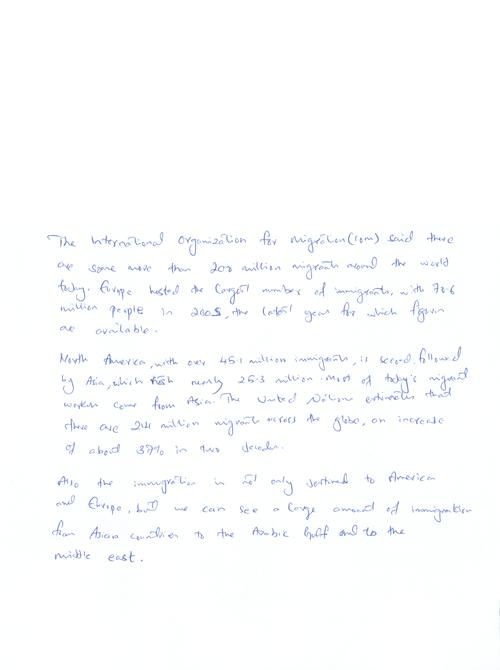 The International Organization for Migration (IOM) said there
are some more than 200 million migrants around the world
today. Europe hosted the largest number of immigrants, with 70.6
million people in 2005, the latest year for which figures
are available.
North America, with over 45.1 million immigrants, is second, followed
by Asia, which nearly 25.3 million. Most of today's migrant
workers come from Asia. The United Nations estimates that
there are 214 million migrants across the globe, an increase
of about 37% in two decades.
Also the immigration is not only destined to America
and Europe, but we can see a large amount of immigration
from Asian countries to the Arabic Gulf and to the
middle east.